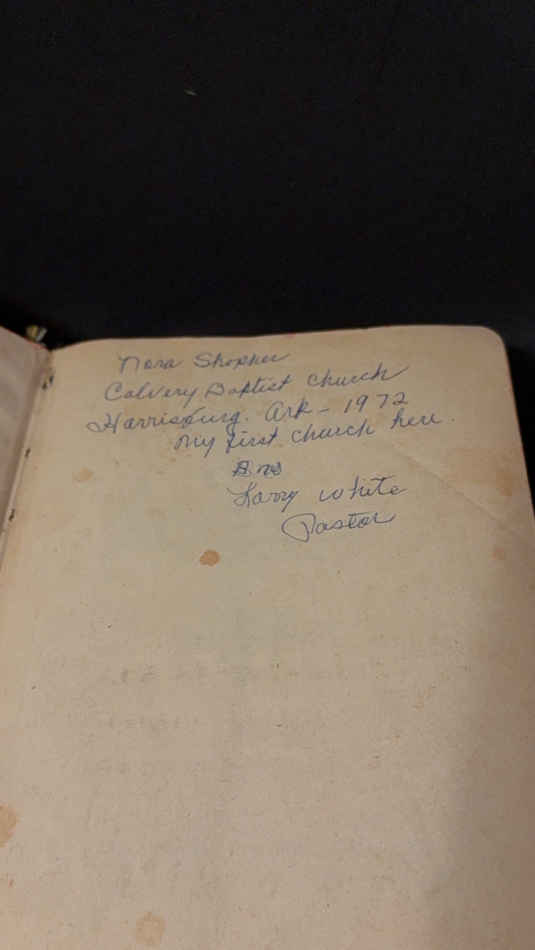 Nora
Calvery Baptist Church
Harrisburg. Ark - 1972
my first church here.
Larry White
Pastor